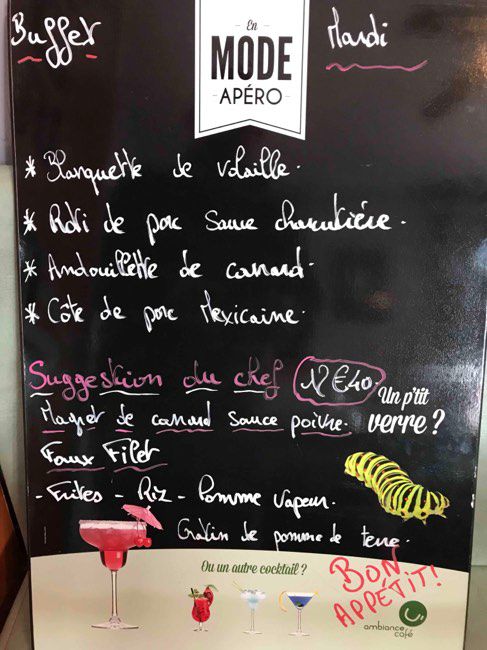 Buffet
En
MODE
APÉRO
Mardi
* Blanquette de volaille.
* Rôti de porc Sauce charcutière.
* Andouillette de canard.
* Côte de porc Mexicaine.
Suggestion du chef 12€40.
Un p'tit
verre ?
Magret de canard Sauce poivre.
Faux Filet
- Frites - Riz - Pomme vapeur.
Gratin de pomme de terre.
Ou un autre cocktail ?
BON
APPÉTIT!
ambiance
café